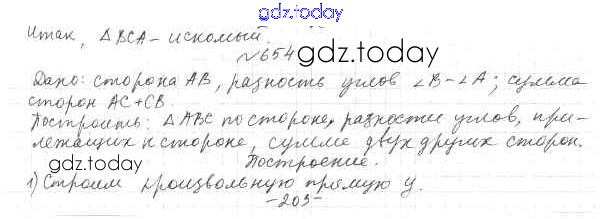 gdz.today
Итак, ΔBCA – искомый.
№654
gdz.today
Дано: сторона AB, разность углов ∠B-∠A; сумма
сторон AC+CB.
Построить: ΔABC по стороне, разности углов, при-
лежащих к стороне, сумме двух других сторон.
gdz.today
Построение.
1) Строим произвольную прямую y.
-203-
gdz.today